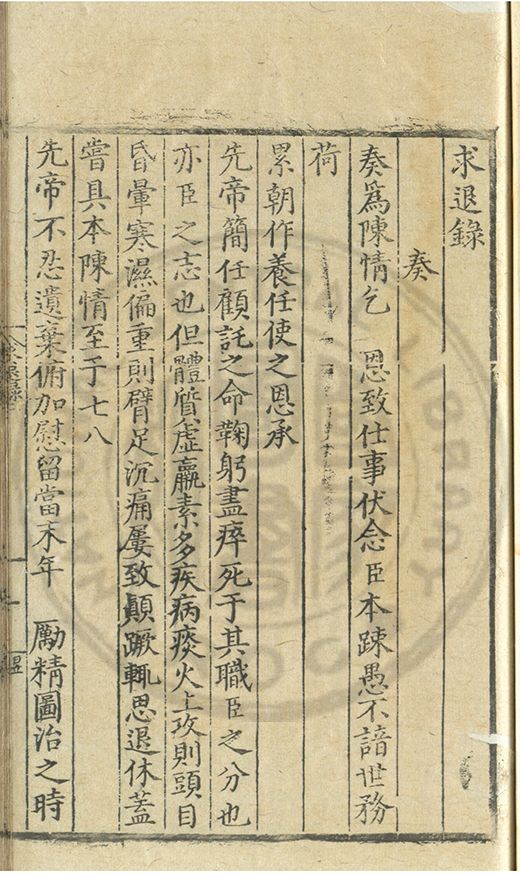 求退錄
奏
奏爲陳情乞　恩致仕事伏念臣本疎愚不諳世務
荷
累朝作養任使之恩承
先帝簡任顧託之命鞠躬盡瘁死于其職臣之分也
亦臣之志也但體質虛羸素多疾病痰火上攻則頭目
昏暈寒濕偏重則臂足沉痛屢致顚蹶輒思退休蓋
嘗具本陳情至于七八
先帝不忍遺棄俯加慰留當末年　勵精圖治之時